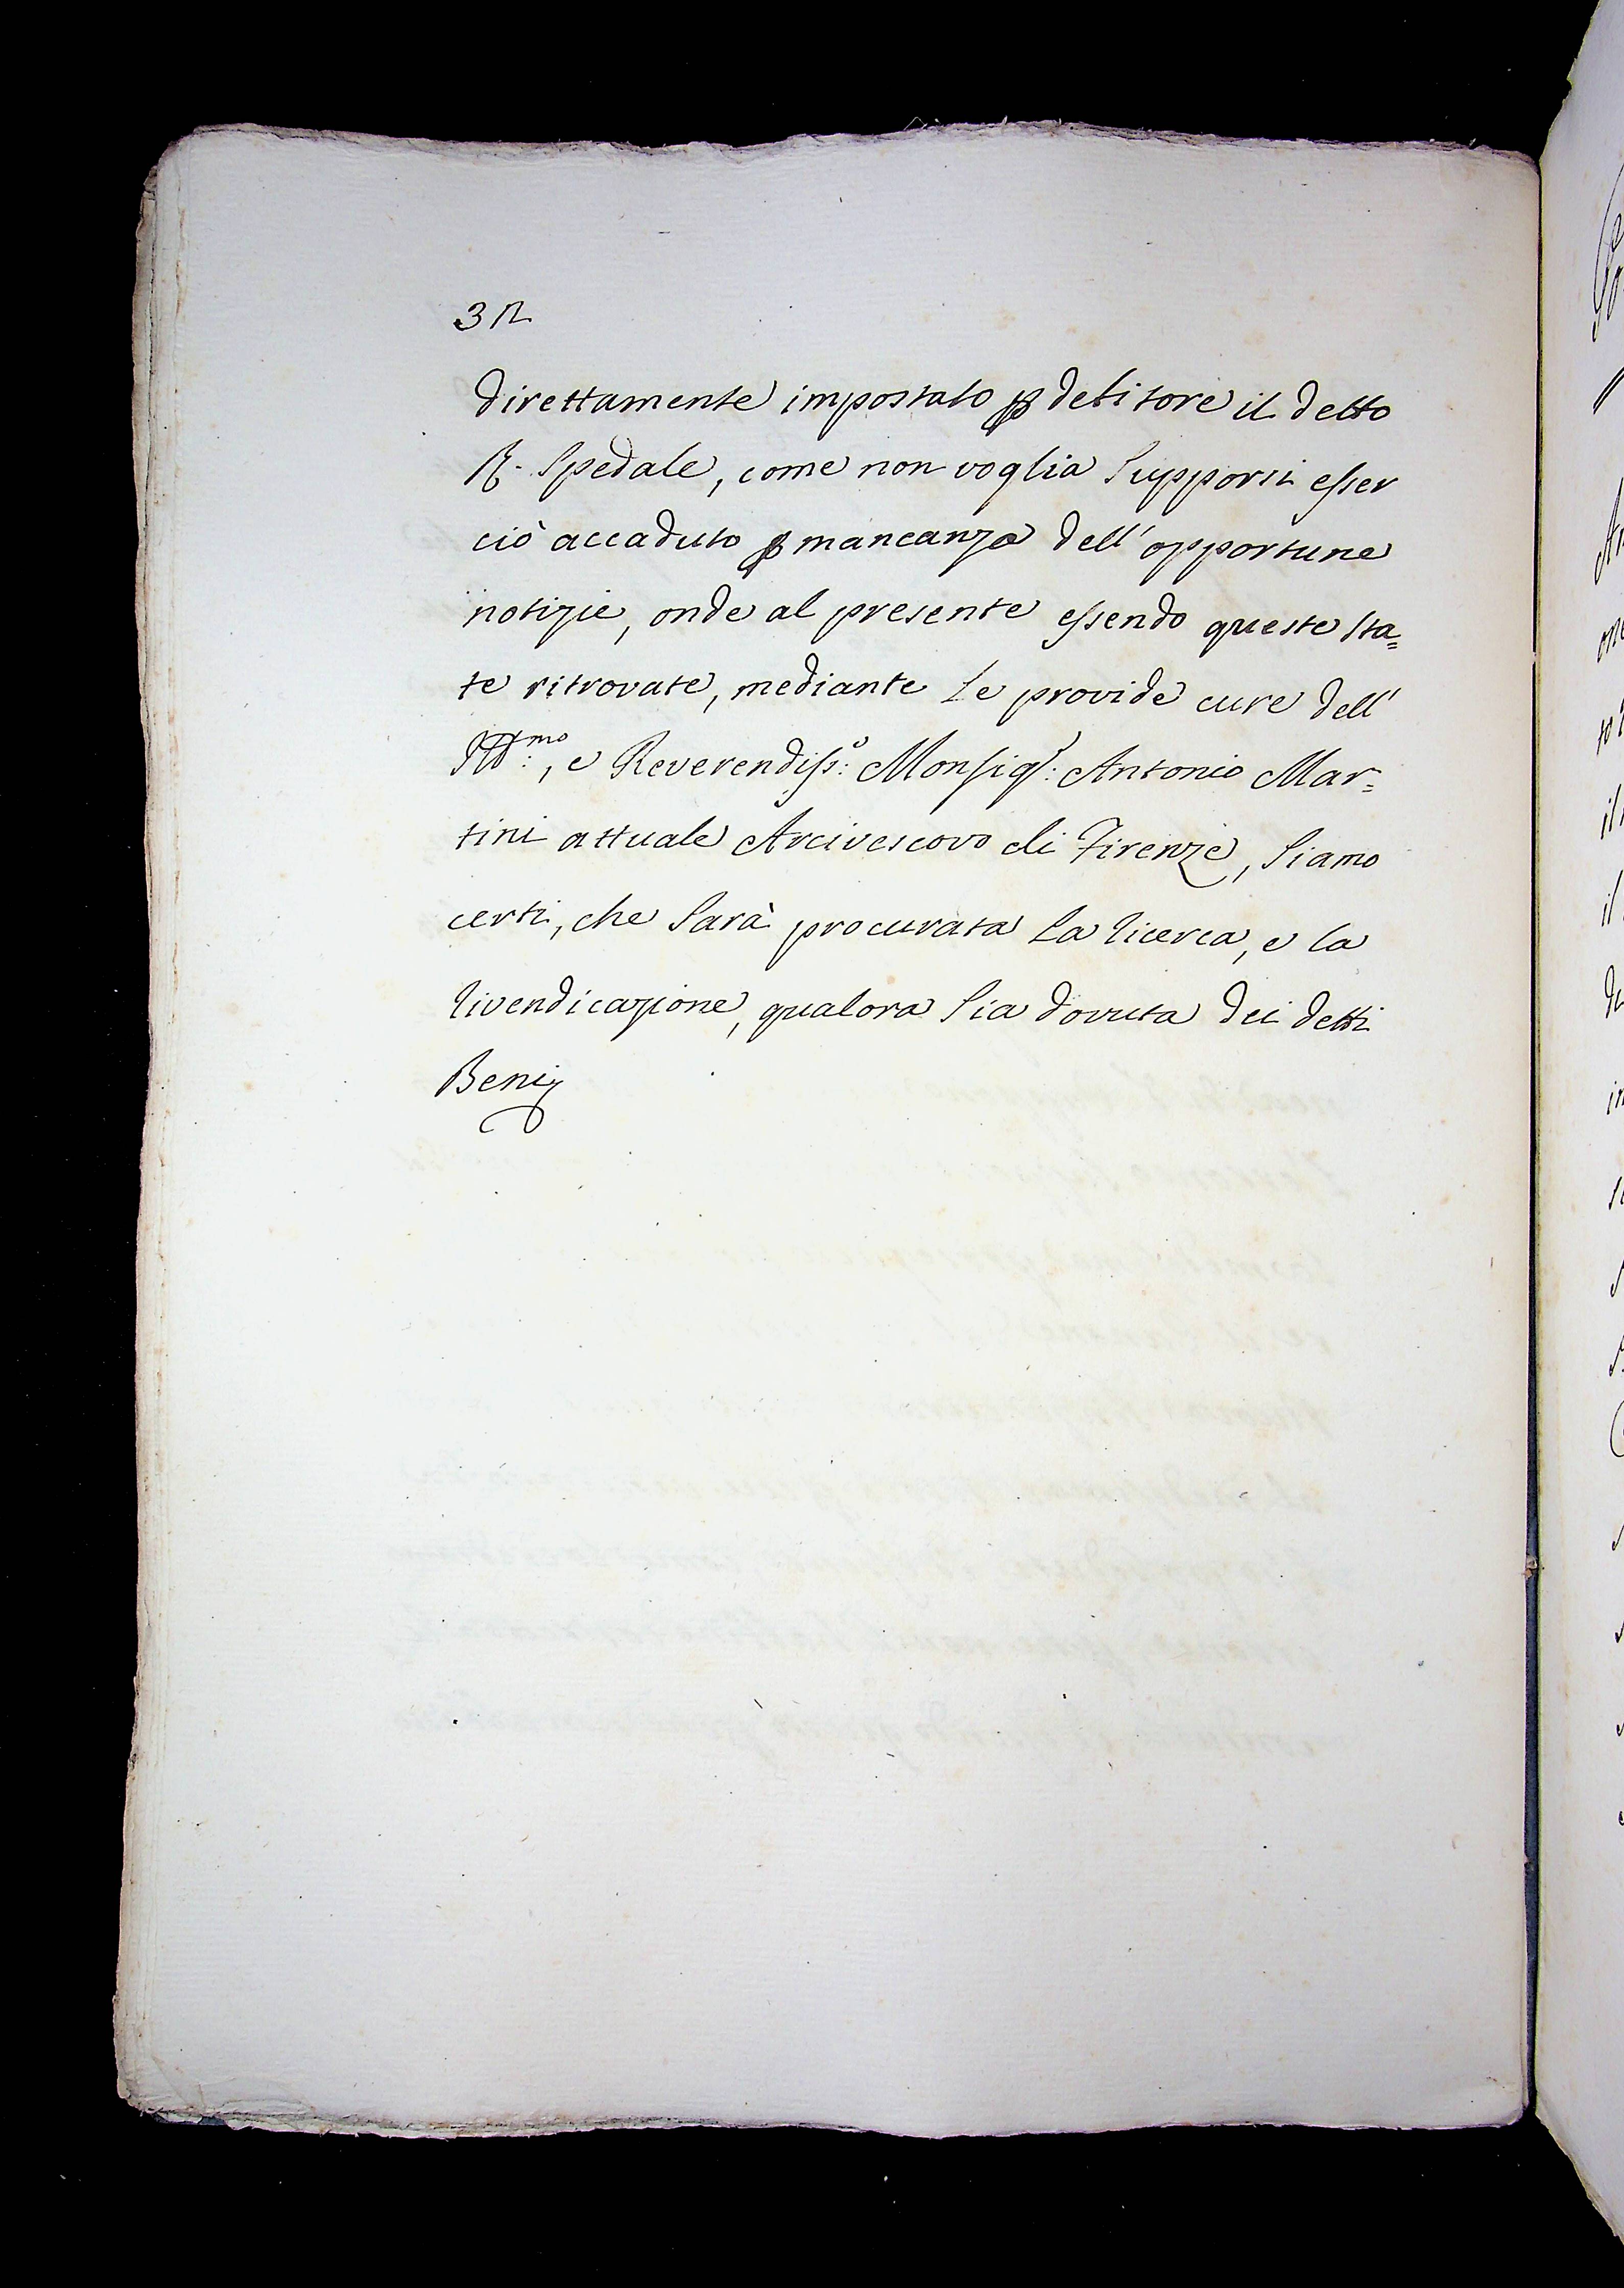 32
direttamente impostato ꝑ debitore il detto
R. Spedale, come non voglia Supporsi esser
ciò accaduto ꝑ mancanza dell'opportune
notizie, onde al presente essendo queste sta=
te ritrovate, mediante le provide cure dell'
Ill.mo, e Reverendiss.o Monsig.r Antonio Mar=
tini attuale Arcivescovo di Firenze, Siamo
certi, che Sarà procurata la ricerca, e la
rivendicazione, qualora Sia dovuta dei detti
Beni